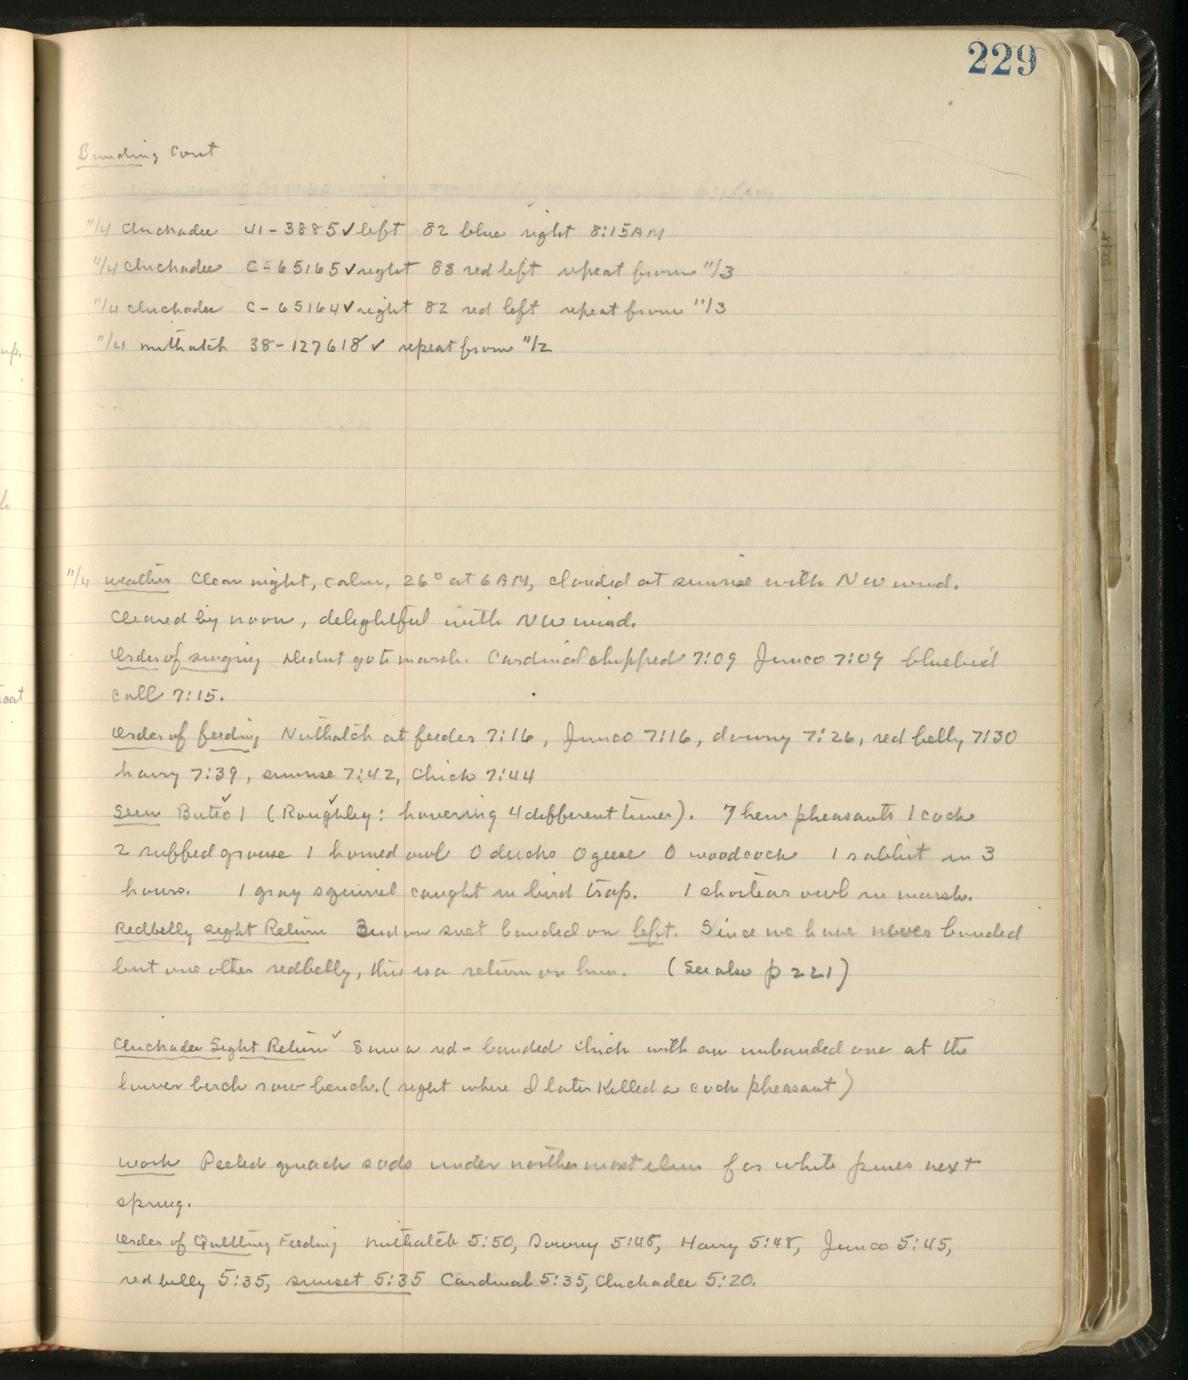 229
Banding Cont
11/4 Chickadee 41-38854 ✓ left 82 blue right 8:15AM
11/4 Chickadee C-65165 ✓ right 83 red left repeat from 11/3
11/4 Chickadee C-65164 ✓ right 82 red left repeat from 11/3
11/4 nuthatch 38-127618 ✓ repeat from 11/2
11/4 weather Clear night, calm, 26° at 6AM, clouded at sunrise with NW wind.
Cleared by noon, delightful with NW wind.
Order of singing Didnt go to marsh. Cardinal chipped 7:09 Junco 7:09 bluebird
call 7:15.
Order of feeding Nuthatch at feeder 7:16, Junco 7:16, downy 7:26, red belly 7:30
hairy 7:39, sunrise 7:42, Chick 7:44
Seen Buteo ✓ 1 (Roughleg ✓: hovering 4 different times). 7 hen pheasants 1 cock
2 ruffed grouse 1 horned owl 0 ducks 0 geese 0 woodcock 1 rabbit in 3
hours. 1 gray squirrel caught in bird trap. 1 shortear owl in marsh.
Redbelly sight Return Bird on suet banded on left. Since we have never banded
but one other redbelly, this is a return on him. (See also p 221)
Chickadee Sight Return ✓ Saw a red-banded chick with an unbanded one at the
lower birch row bench. (right where I later killed a cock pheasant)
Work Peeled quack sods under northernmost elm for white pines next
spring.
Order of Quitting Feeding nuthatch 5:50, Downy 5:48, Hairy 5:48, Junco 5:45,
red belly 5:35, sunset 5:35 Cardinal 5:35, Chickadee 5:20.